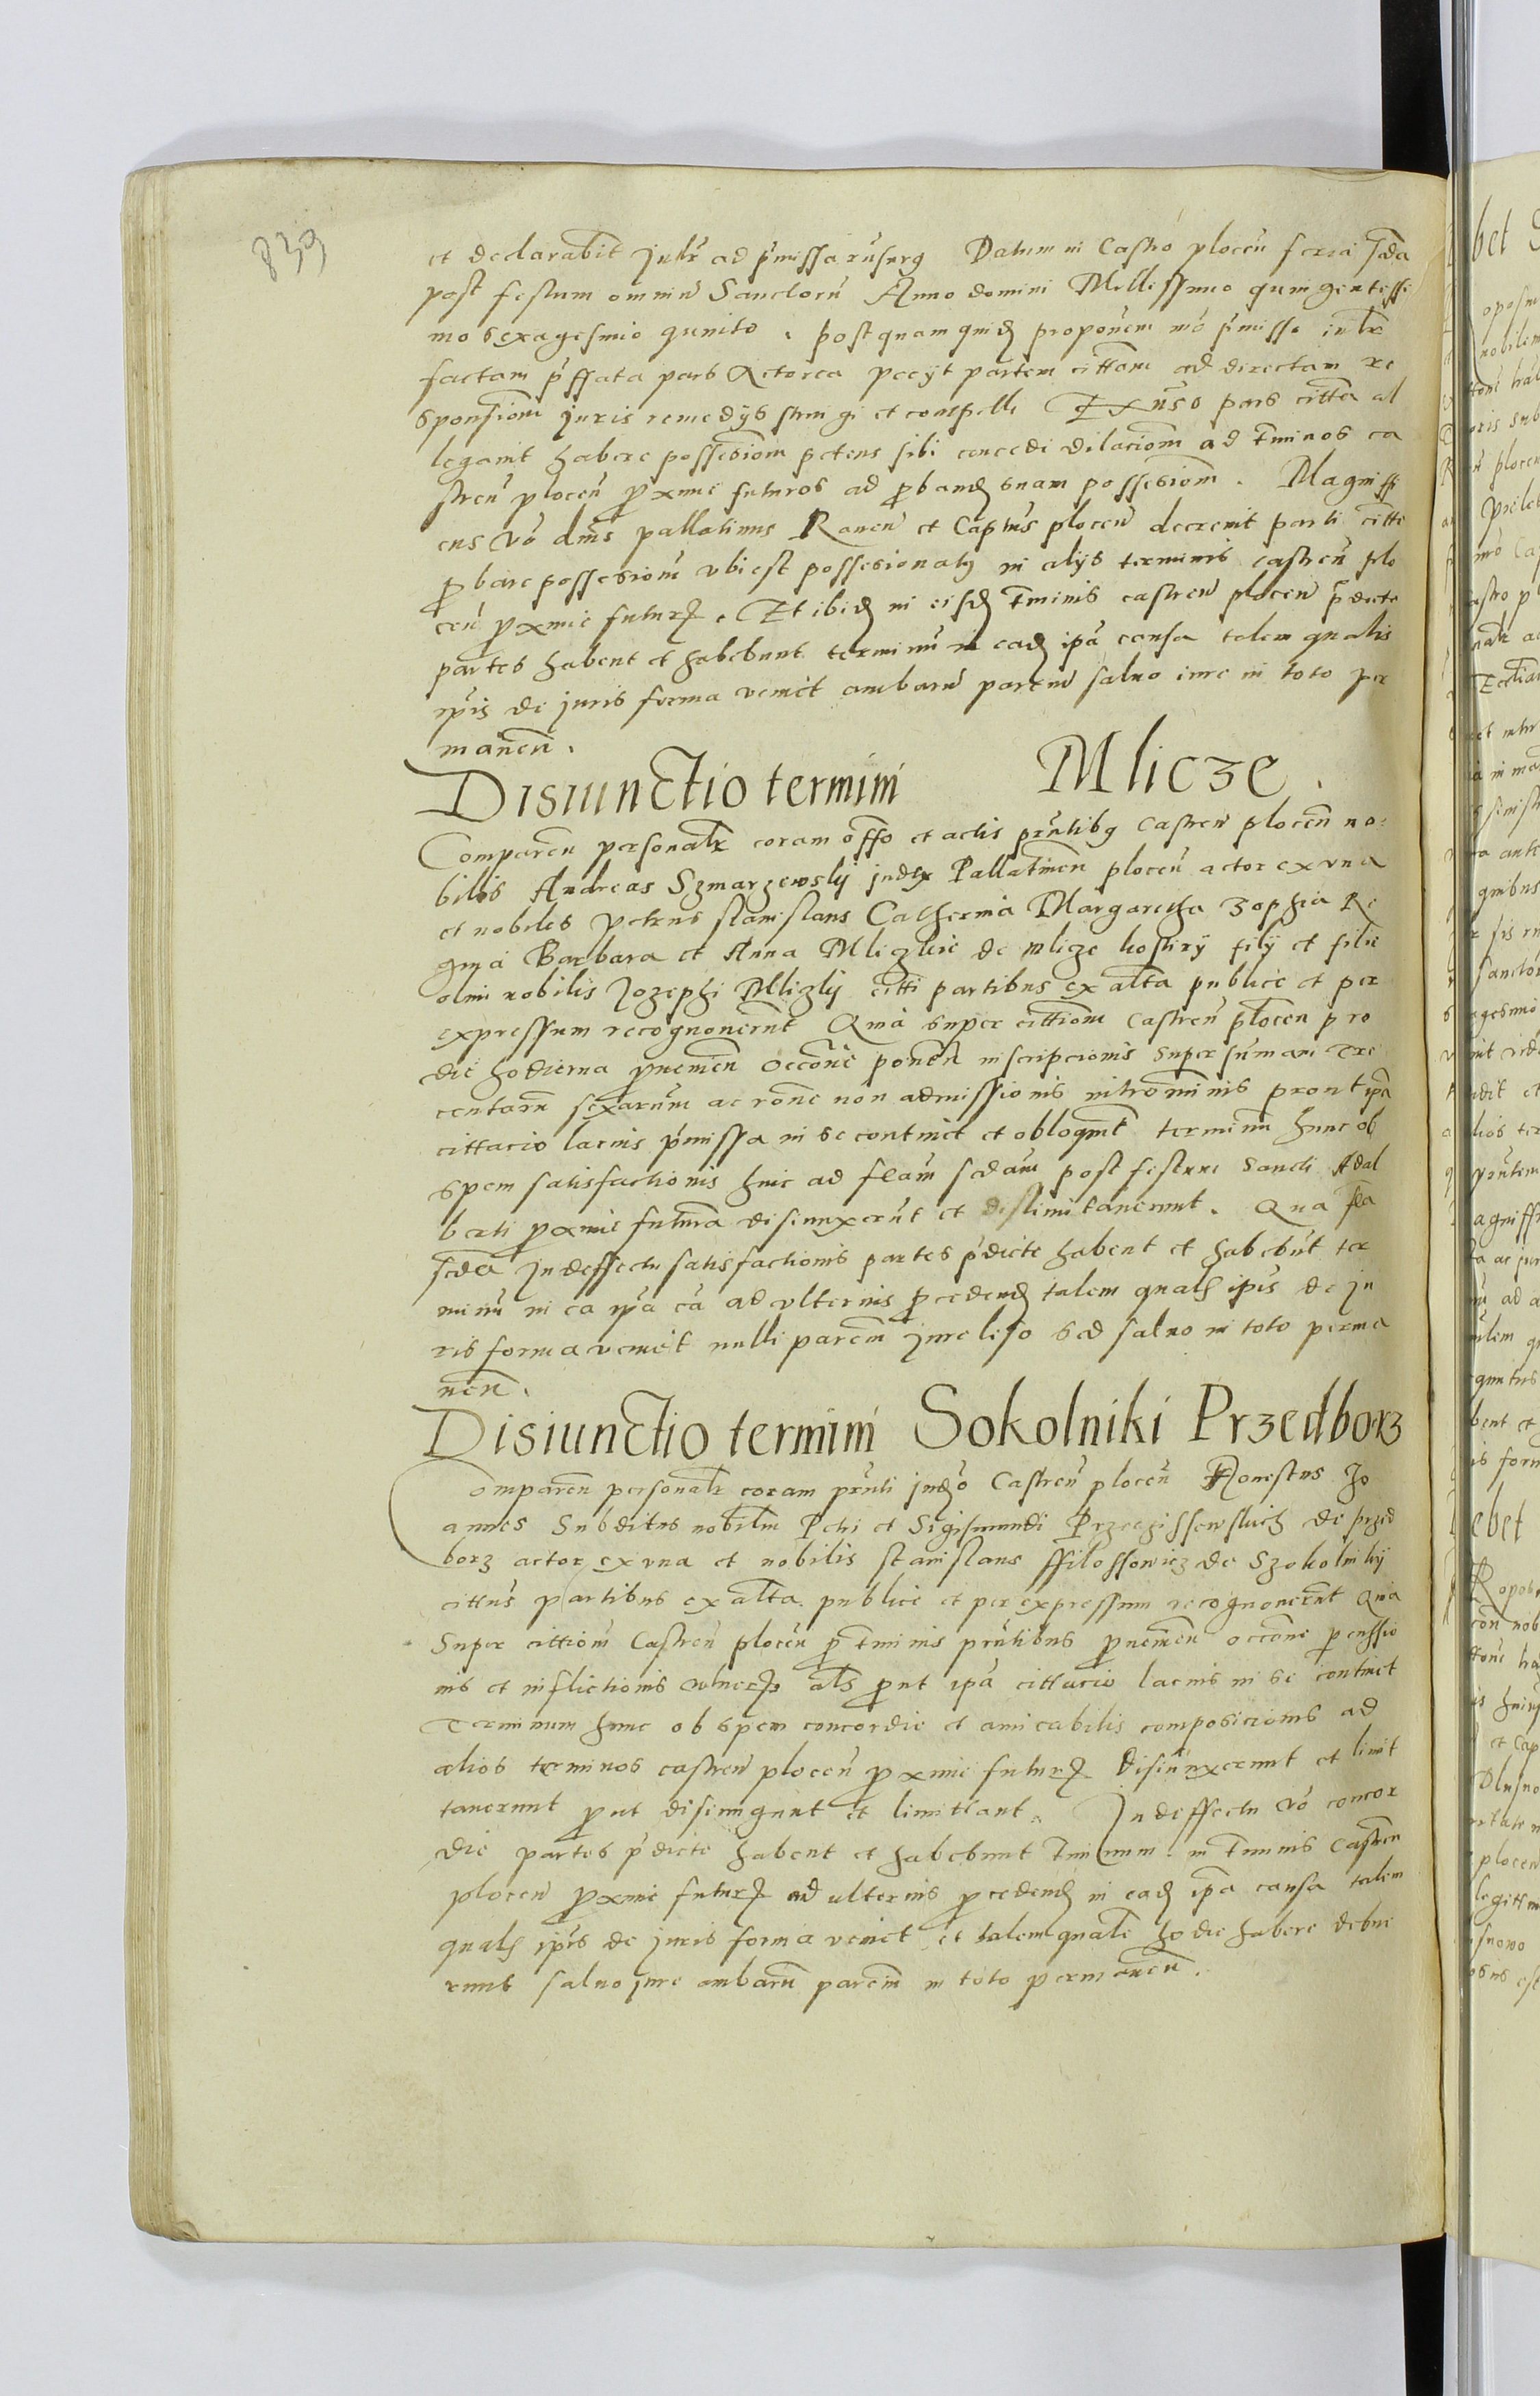 839
et declarabit Jultr ad pmissa rusurq Datum in Castro plocen feria scda
post festum omnium Sanctorum Anno domini Millessimo quingentessi
mo sexagesimo quinto . postquam quidem proponem mo pmisso intr
factam pffata pars Actorea pecijt partem cittam ad directam re
sponsiom juris remedijs stringi et compelli Exuso pars citta al
legavit habere possesiom petens sibi concedi dilaciom ad tminos ca
stren plocen pxime futuros ad pband suam possesiom . Magniffi
cus vo dms pallatinus Raven et Captus plocen decrevit parti citte
pbare possesiom ubi est possesionatq in alijs terminis castren plo
cen pxime futur . Et ibid in eisd tminis castren plocen pdicte
partes habent et habebunt terminu in ead ipa causa talem qualis
ipis de juris forma veniet ambaru parcium salvo iure in toto per
manen .
Disiunctio termini Mlicze .
Comparen personalr coram offo et actis prntibq Castren plocen no:
bilis Andreas Szmarzewskij judex Pallatinen plocen actor ex una
et nobiles petrus stanislaus Catherina Margaretha Zophia Re
gina Barbara et Anna Mliczkie de mlicze kostrij filij et filie
olim nobilis Jozephi Mliczkij citti partibus ex alta publice et per
expressum recognoverunt Quia super cittiom Castren plocen pro
die hodierna pvenien occone ponen inscripcionis super sumam Tre
centaru sexarum ac rone non admissionis intromimis prout ipa
cittacio lacius pmissa in se continet et obloquit terminu hunc ob
spem satisfactionis huic ad feam scdam post festum sancti Adal
berti pxime futura disiunxerut et dislimitaverunt . Qua fea
scda In deffectu satisfactionis partes pdicte habent et habebut ter
minu in ea ipa ca ad ulterius pcedend talem quals ipis de ju
ris forma veniet nulli parcim jure leso sed salvo in toto perma
nen .
Disiunctio termini Sokolniki Przedborz
Comparen personalr coram prnti judo Castren plocen Honestus Jo
annes Subditus nobilm Petri et Sigismundi Przeczissewskich de przed
borz actor ex una et nobilis stanislaus ffilossowicz de Szokolnikij
cittus partibus ex alta publice et per expressum recognoverunt Quia
Super cittiom Castren plocen p tminis prntibus pvenien occone percussio
nis et inflictionis vulner als put ipa cittacio lacius in se continet
Terminum hunc ob spem concordie et amicabilis composicionis ad
alios terminos castren plocen pxime futur disiunxerunt et limit
taverunt put disiungunt et limittant . In deffectu vo concor
die partes pdicte habent et habebunt tminum in tminis Castren
plocen pxime futur ad ulterius pcedend in ead ipa causa talem
quals ipis de juris forma veniet et talem quale hodie habere debue
runt salvo jure ambaru parcim in toto permanen .